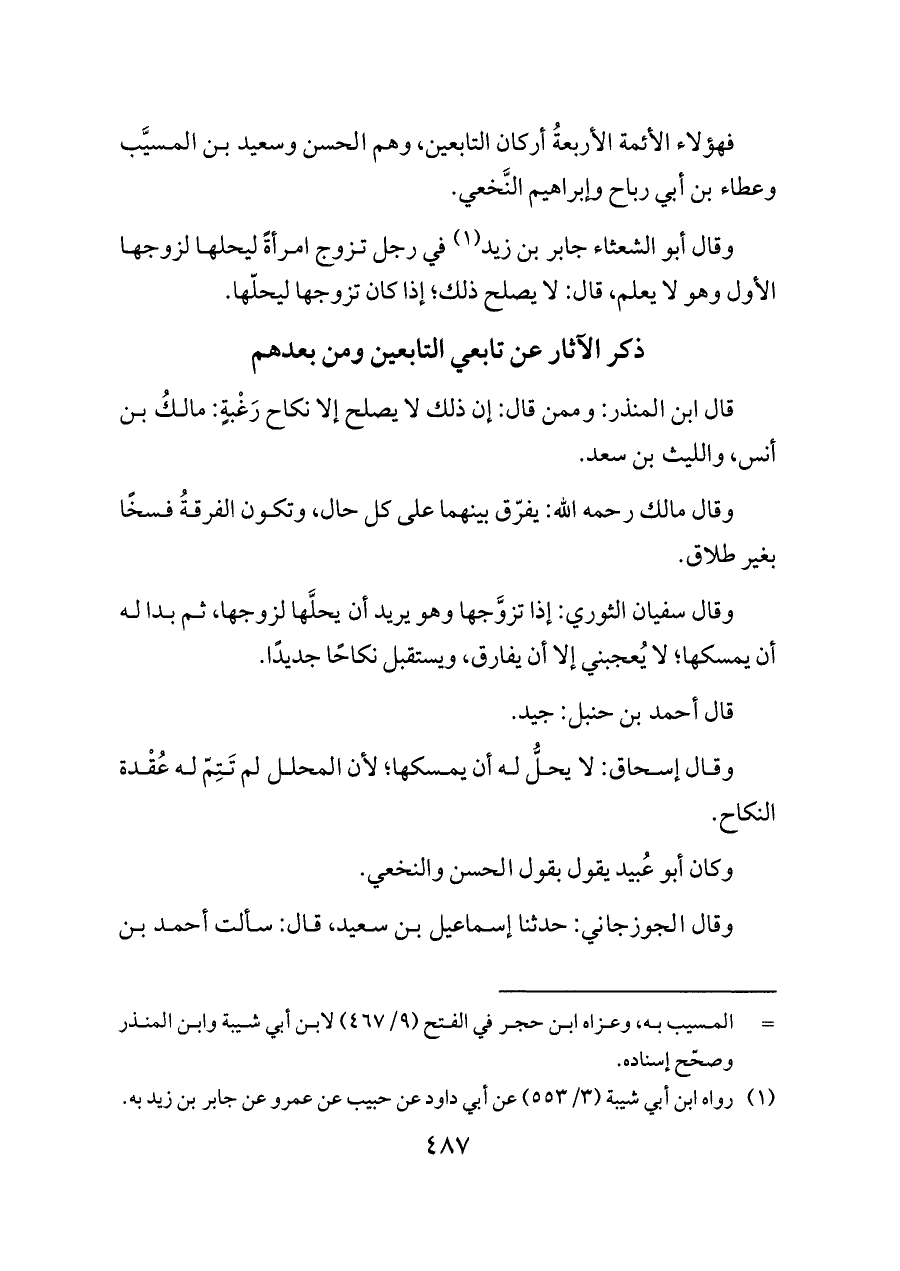 فهؤلاء الأئمة الأربعةُ أركان التابعين، وهم الحسن وسعيد بن المسيَّب
وعطاء بن أبي رباح وإبراهيم النَّخعي.
وقال أبو الشعثاء جابر بن زيد(١) في رجل تزوج امرأةً ليحلها لزوجها
الأول وهو لا يعلم، قال: لا يصلح ذلك؛ إذا كان تزوجها ليحلّها.
ذكر الآثار عن تابعي التابعين ومن بعدهم
قال ابن المنذر: وممن قال: إن ذلك لا يصلح إلا نكاح رَغْبةٍ: مالكُ بن
أنس، والليث بن سعد.
وقال مالك رحمه الله: يفرّق بينهما على كل حال، وتكون الفرقةُ فسخًا
بغير طلاق.
وقال سفيان الثوري: إذا تزوَّجها وهو يريد أن يحلَّها لزوجها، ثم بدا له
أن يمسكها؛ لا يُعجبني إلا أن يفارق، ويستقبل نكاحًا جديدًا.
قال أحمد بن حنبل: جيد.
وقال إسحاق: لا يحلُّ له أن يمسكها؛ لأن المحلل لم تَتِمّ له عُقْدة
النكاح.
وكان أبو عُبيد يقول بقول الحسن والنخعي.
وقال الجوزجاني: حدثنا إسماعيل بن سعيد، قال: سألت أحمد بن
= المسيب به، وعزاه ابن حجر في الفتح (٩/ ٤٦٧) لابن أبي شيبة وابن المنذر
وصحّح إسناده.
(١) رواه ابن أبي شيبة (٣/ ٥٥٣) عن أبي داود عن حبيب عن عمرو عن جابر بن زيد به.
٤٨٧